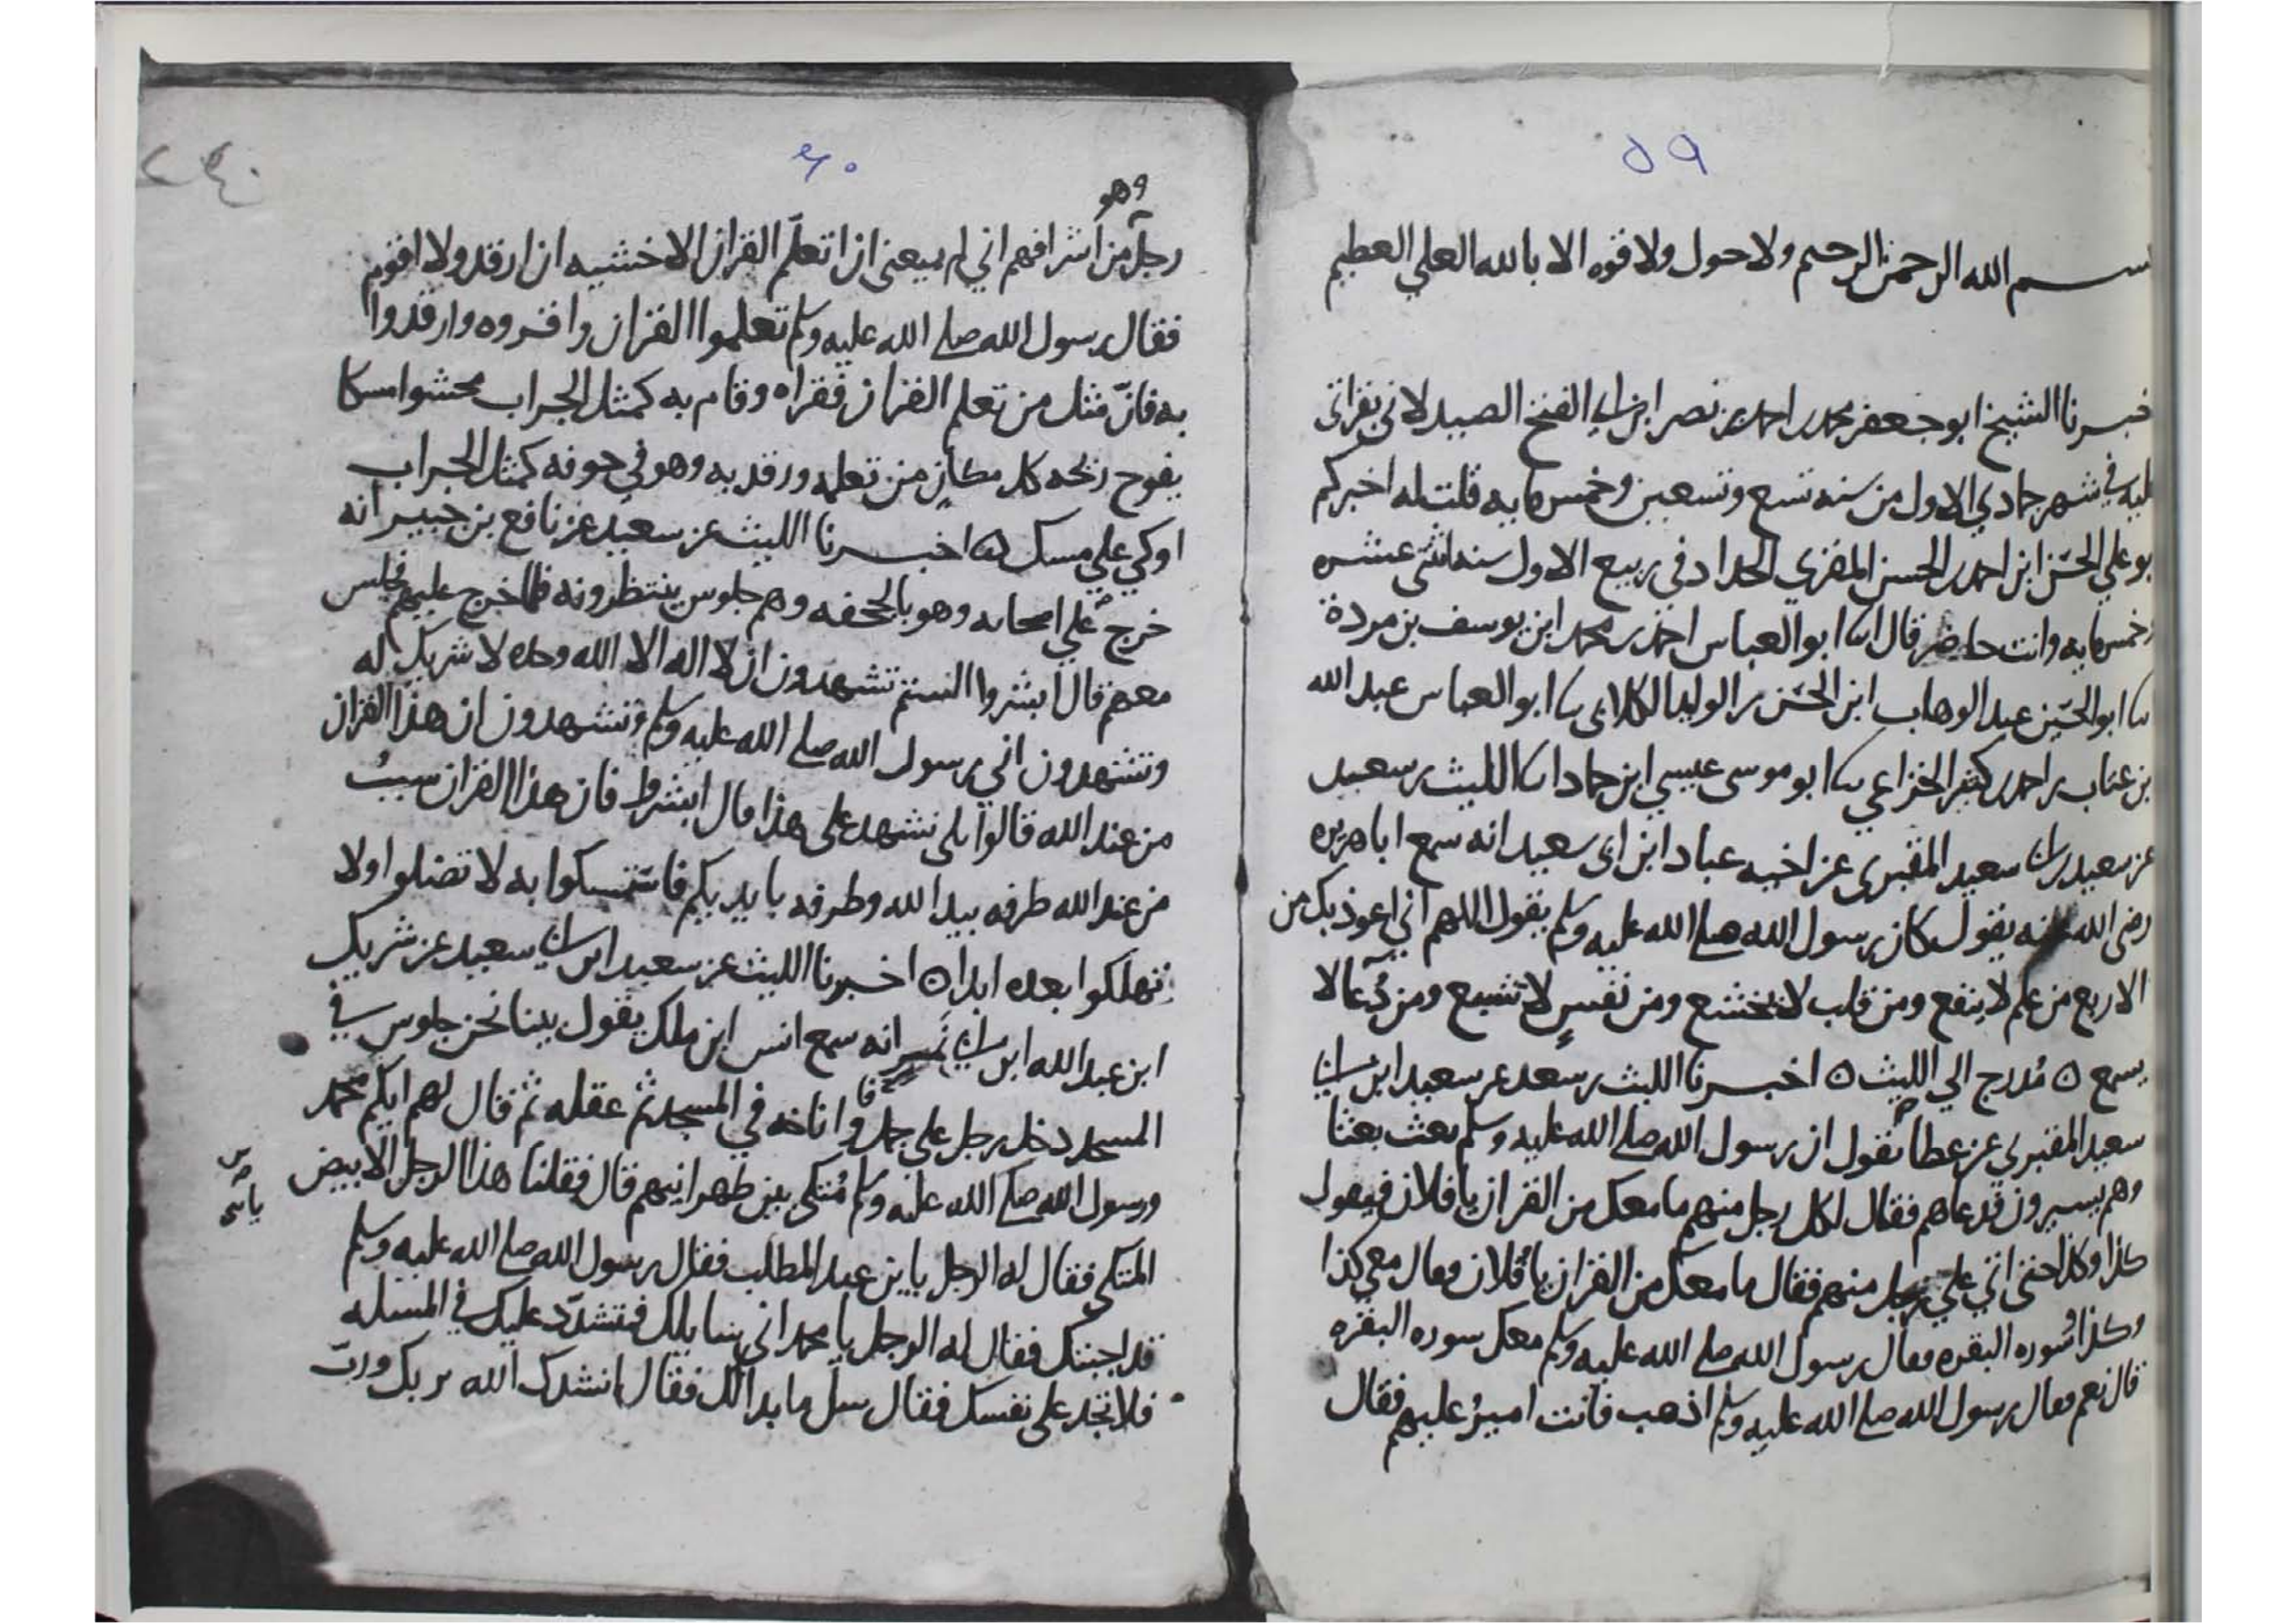 ٥٩
بسم الله الرحمن الرحيم ولا حول ولا قوه الا بالله العلي العظيم
خبرنا الشيخ ابو جعفر محمد بن احمد بن نصر ابن ابي الفتح الصيدلاني بقراتي
عليه في شهر جمادي الاول من سنه تسع وتسعين وخمس مايه قلت له اخبركم
بو علي الحسن ابن احمد بن الحسن المقري الحداد في ربيع الاول سنه اثنتي عشره
وخمس مايه وانت حاضر قال انا ابو العباس احمد بن محمد ابن يوسف بن مردة
نا ابو الحسين عبد الوهاب ابن الحسن بن الوليد الكلابي نا ابو العباس عبد الله
بن عتاب بن احمد بن كثير الخزاعي نا ابو موسى عيسي ابن حماد انا الليث بن سعيد
عن سعيد بن ابي سعيد المقبري عن اخيه عباد ابن ابي سعيد انه سمع ابا هريره
رضى الله عنه يقول كان رسول الله صلى الله عليه وسلم يقول اللهم اني اعوذ بك من
الاربع من علم لا ينفع ومن قلب لا يخشع ومن نفس لا تشبع ومن دعا لا
يسمع ه مدرج الي الليث ه اخبرنا الليث بن سعد عن سعيد ابن ابي
سعيد المقبري عن عطا يقول ان رسول الله صلى الله عليه وسلم بعث بعثا
وهم يسيرون فدعاهم فقال لكل رجل منهم ما معك من القران يا فلان فيقول
كذا وكذا حتى اتي علي رجل منهم فقال ما معك من القران يا فلان فقال معي كذا
وكذا وسوره البقره فقال رسول الله صلى الله عليه وسلم معك سوره البقره
قال نعم فقال رسول الله صلى الله عليه وسلم اذهب فانت امير عليهم فقال
٦٠
٢٤٠
وهو
رجل من اشرافهم اني لم يمنعني ان اتعلم القران الا خشيه ان ارقد ولا اقوم
فقال رسول الله صلى الله عليه وسلم تعلموا القران واقروه وارقدوا
به فان مثل من تعلم القران فقراه وقام به كمثل الجراب محشوا مسكا
يفوح ريحه كل مكان من تعلمه ورقد به وهو في جوفه كمثل الجراب
اوكي علي مسك ه اخبرنا الليث عن سعيد عن نافع بن جبير انه
خرج علي اصحابه وهو بالجحفه وهم جلوس ينتظرونه فلما خرج عليهم فجلس
معهم قال ابشروا الستم تشهدون ان لا اله الا الله وحده لا شريك له
وتشهدون اني رسول الله صلى الله عليه وسلم وتشهدون ان هذا القران
من عند الله قالوا بلى نشهد على هذا قال ابشروا فان هذا القران سبب
من عند الله طرفه بيد الله وطرفه بايديكم فاستمسكوا به لا تضلوا ولا
تهلكوا بعده ابدا ه اخبرنا الليث عن سعيد ابن ابي سعيد عن شريك
ابن عبد الله ابن ابي نمير انه سمع انس ابن ملك يقول بينا نحن جلوس في
المسجد دخل رجل على جمل واناخه في المسجد ثم عقله ثم قال لهم ايكم محمد
ورسول الله صلى الله عليه وسلم متكى بين ظهرانيهم قال فقلنا هذا الرجل الابيض
المتكى فقال له الرجل يابن عبد المطلب فقال رسول الله صلى الله عليه وسلم
قد اجبتك فقال له الرجل يا محمد اني سايلك فمتشدد عليك في المسله
فلا تجد على نفسك فقال سل ما بدا لك فقال انشدك الله بربك ورب